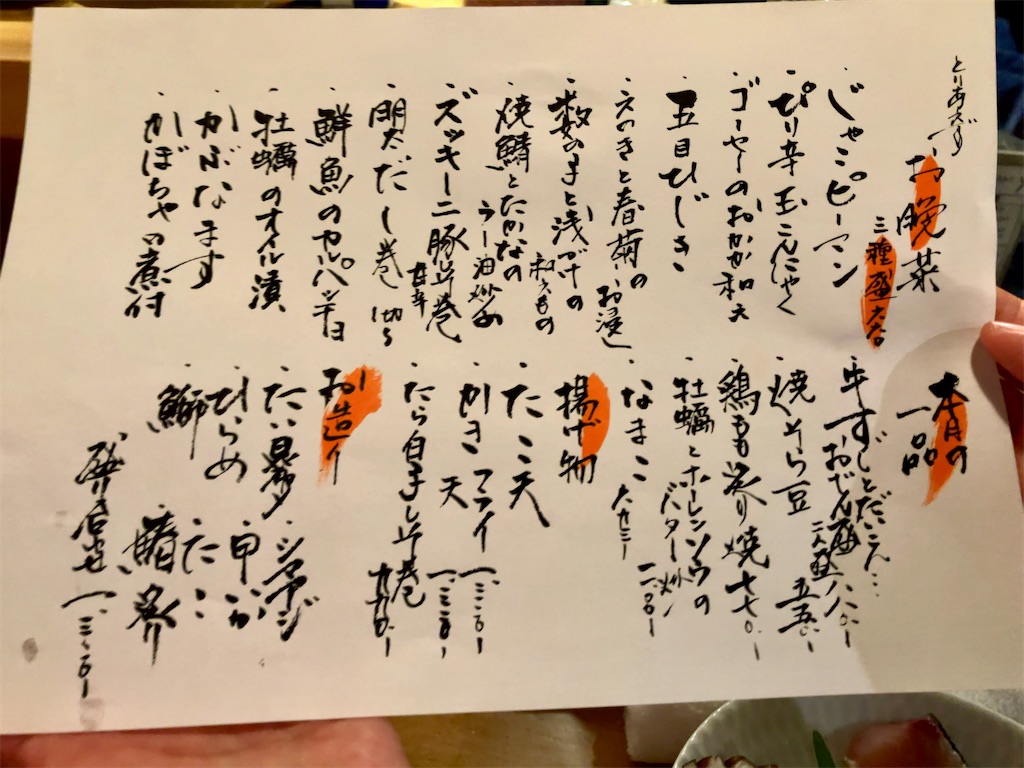 とりあえず
お晩菜
三種盛
・じゃこピーマン
・ぴり辛玉こんにゃく
・ゴーヤーのおかか和え
・五目ひじき
・えのきと春菊のお浸し
・数の子と浅づけの
和えもの
・焼鯖とたかなの
ラー油炒め
・ズッキーニ豚平巻
甘辛
・明太だし巻
・鮮魚のカルパッチョ
・牡蠣のオイル漬
・かぶなます
・かぼちゃの煮付
本日の
一品
・牛すじとだいこん…
おでん盛
二人盛 八八〇ー
・焼そら豆 五五〇ー
・鶏もも炙り焼 七七〇ー
・牡蠣とホーレンソウの
バター炒
・なまこ
揚げ物
・たこ天
・かきフライ
天
・たら白子し平巻
お造り
・たい昆布〆
・ひらめ
・鰤
・シマアジ
・甲いか
・たこ
・鰆炙り
盛り合せ